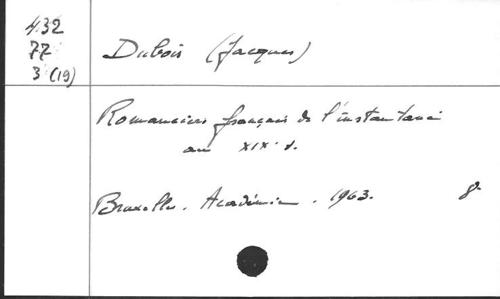 432
77
3 (19)
Dubois (Jacques)
Romanciers français de l'instantané
au XIXe s.
Bruxelles. Académie. 1963. 8°